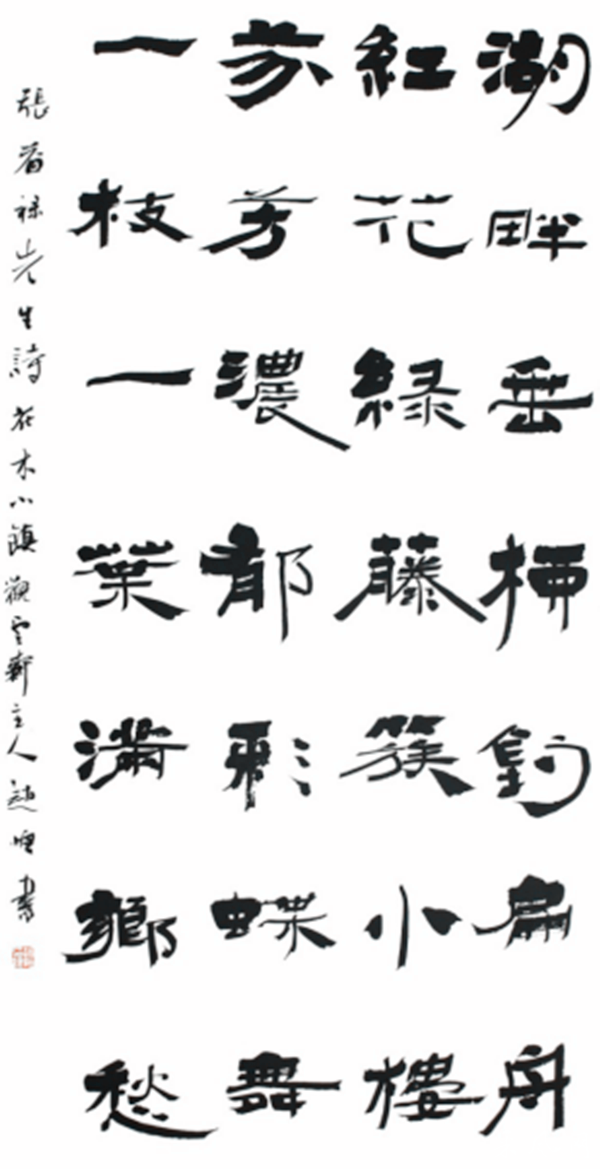 湖畔垂柳釣扁舟
紅花綠藤簇小樓
芬芳濃郁彩蝶舞
一枝一葉滿鄉愁
張祿先生詩花木小鎮觀雲軒主人趙書